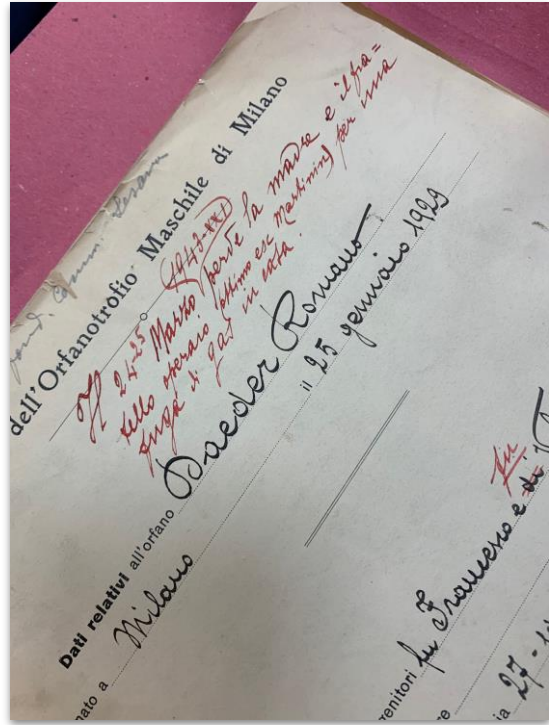 dell'Orfanotrofio Maschile di Milano
Il 24-25 Marzo 1943-XXI perde la madre e il fra=
tello operaio (ottimo ex Martinino) per una
fuga di gas in casa.
Dati relativi all'orfano Daeder Romano
nato a Milano il 25 gennaio 1929
genitori fu Francesco e di fu
27-1